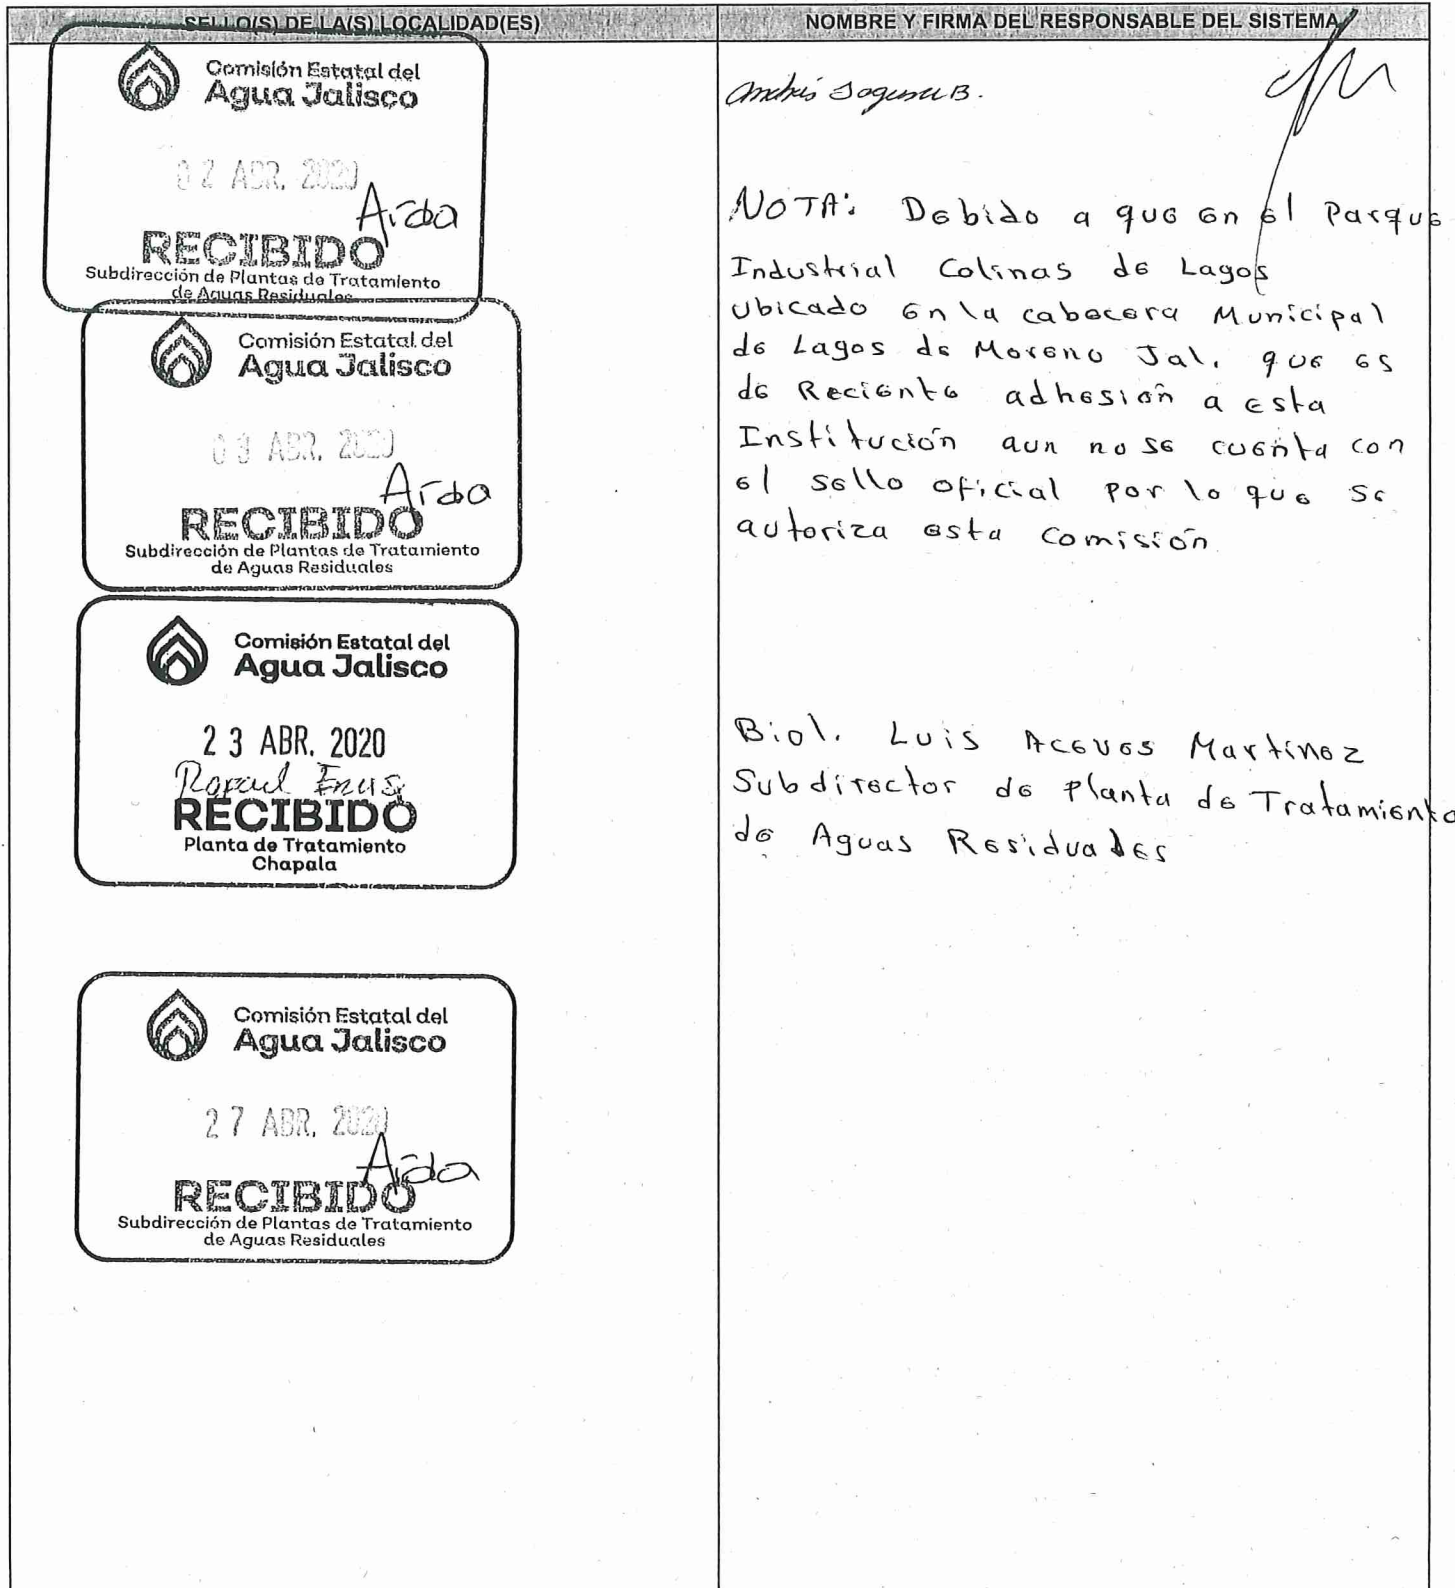 SELLO(S) DE LA(S) LOCALIDAD(ES)
Comisión Estatal del
Agua Jalisco
02 ABR. 2020
Aida
RECIBIDO
Subdirección de Plantas de Tratamiento
de Aguas Residuales
Comisión Estatal del
Agua Jalisco
03 ABR. 2020
Aida
RECIBIDO
Subdirección de Plantas de Tratamiento
de Aguas Residuales
Comisión Estatal del
Agua Jalisco
23 ABR. 2020
Rafael
RECIBIDO
Planta de Tratamiento
Chapala
Comisión Estatal del
Agua Jalisco
27 ABR. 2020
Aida
RECIBIDO
Subdirección de Plantas de Tratamiento
de Aguas Residuales
NOMBRE Y FIRMA DEL RESPONSABLE DEL SISTEMA
Andrés B.
NOTA: Debido a que en el Parque
Industrial Colinas de Lagos
ubicado en la cabecera Municipal
de Lagos de Moreno Jal. que es
de Reciente adhesión a esta
Institución aun no se cuenta con
el sello oficial por lo que se
autoriza esta Comisión
Biol. Luis Aceves Martinez
Subdirector de Planta de Tratamiento
de Aguas Residuales